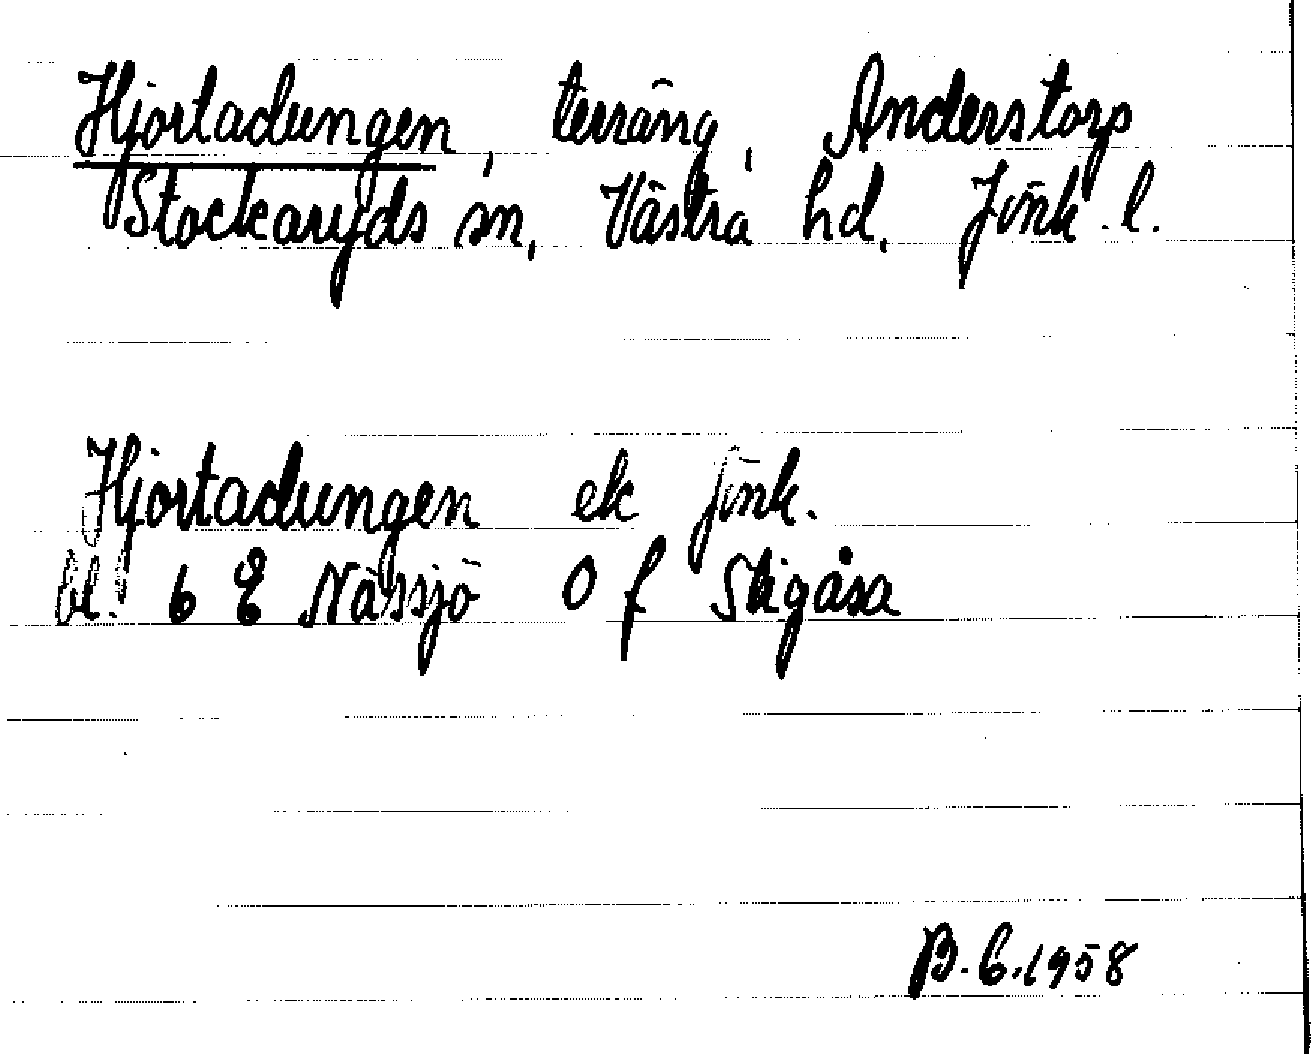 Hjortadungen, terräng, Anderstorp
Stockaryds sn, Västra hd, Jönk. l.
Hjortadungen ek jönk.
bl. 6 E Nässjö O f Stigåsa
B. E. 1958